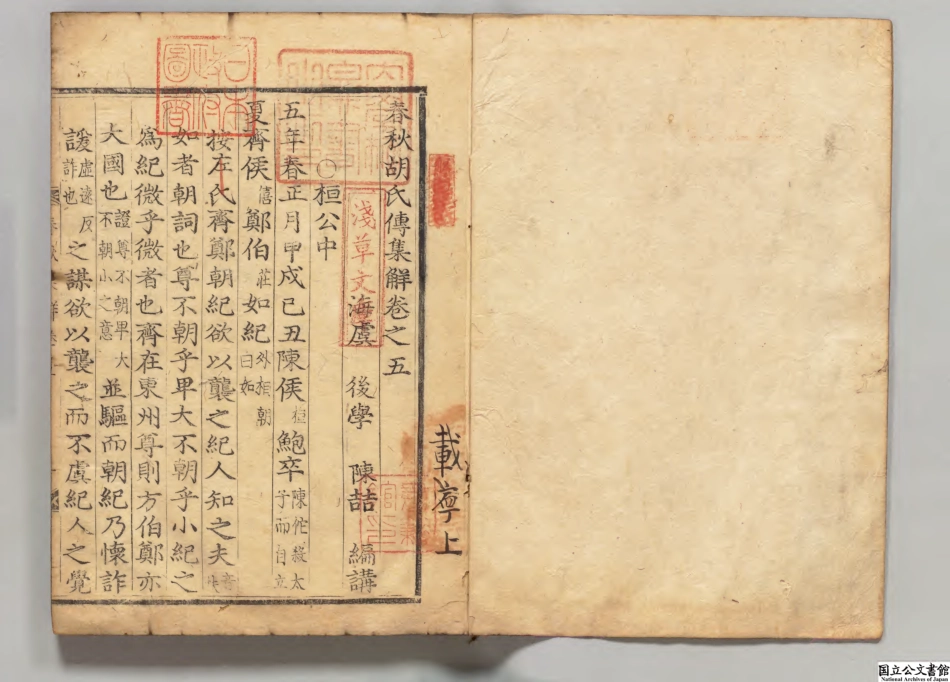 春秋胡氏傳集解卷之五
海虞 後學 陳喆 編講
○桓公中
五年春正月甲戌己丑陳侯桓鮑卒陳佗殺太子而自立
夏齊侯僖鄭伯莊如紀外相朝曰如
按左氏齊鄭朝紀欲以襲之紀人知之夫音扶
如者朝詞也尊不朝乎卑大不朝乎小紀之
為紀微乎微者也齊在東州尊則方伯鄭亦
大國也證尊不朝卑大不朝小之意並驅而朝紀乃懷詐
諼虛遠反詐也之謀欲以襲之而不虞紀人之覺
載寧上
淺草文庫
日本政府圖書
国立公文書館
National Archives of Japan